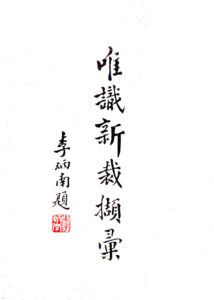 唯識新裁擷彙
李炳南題